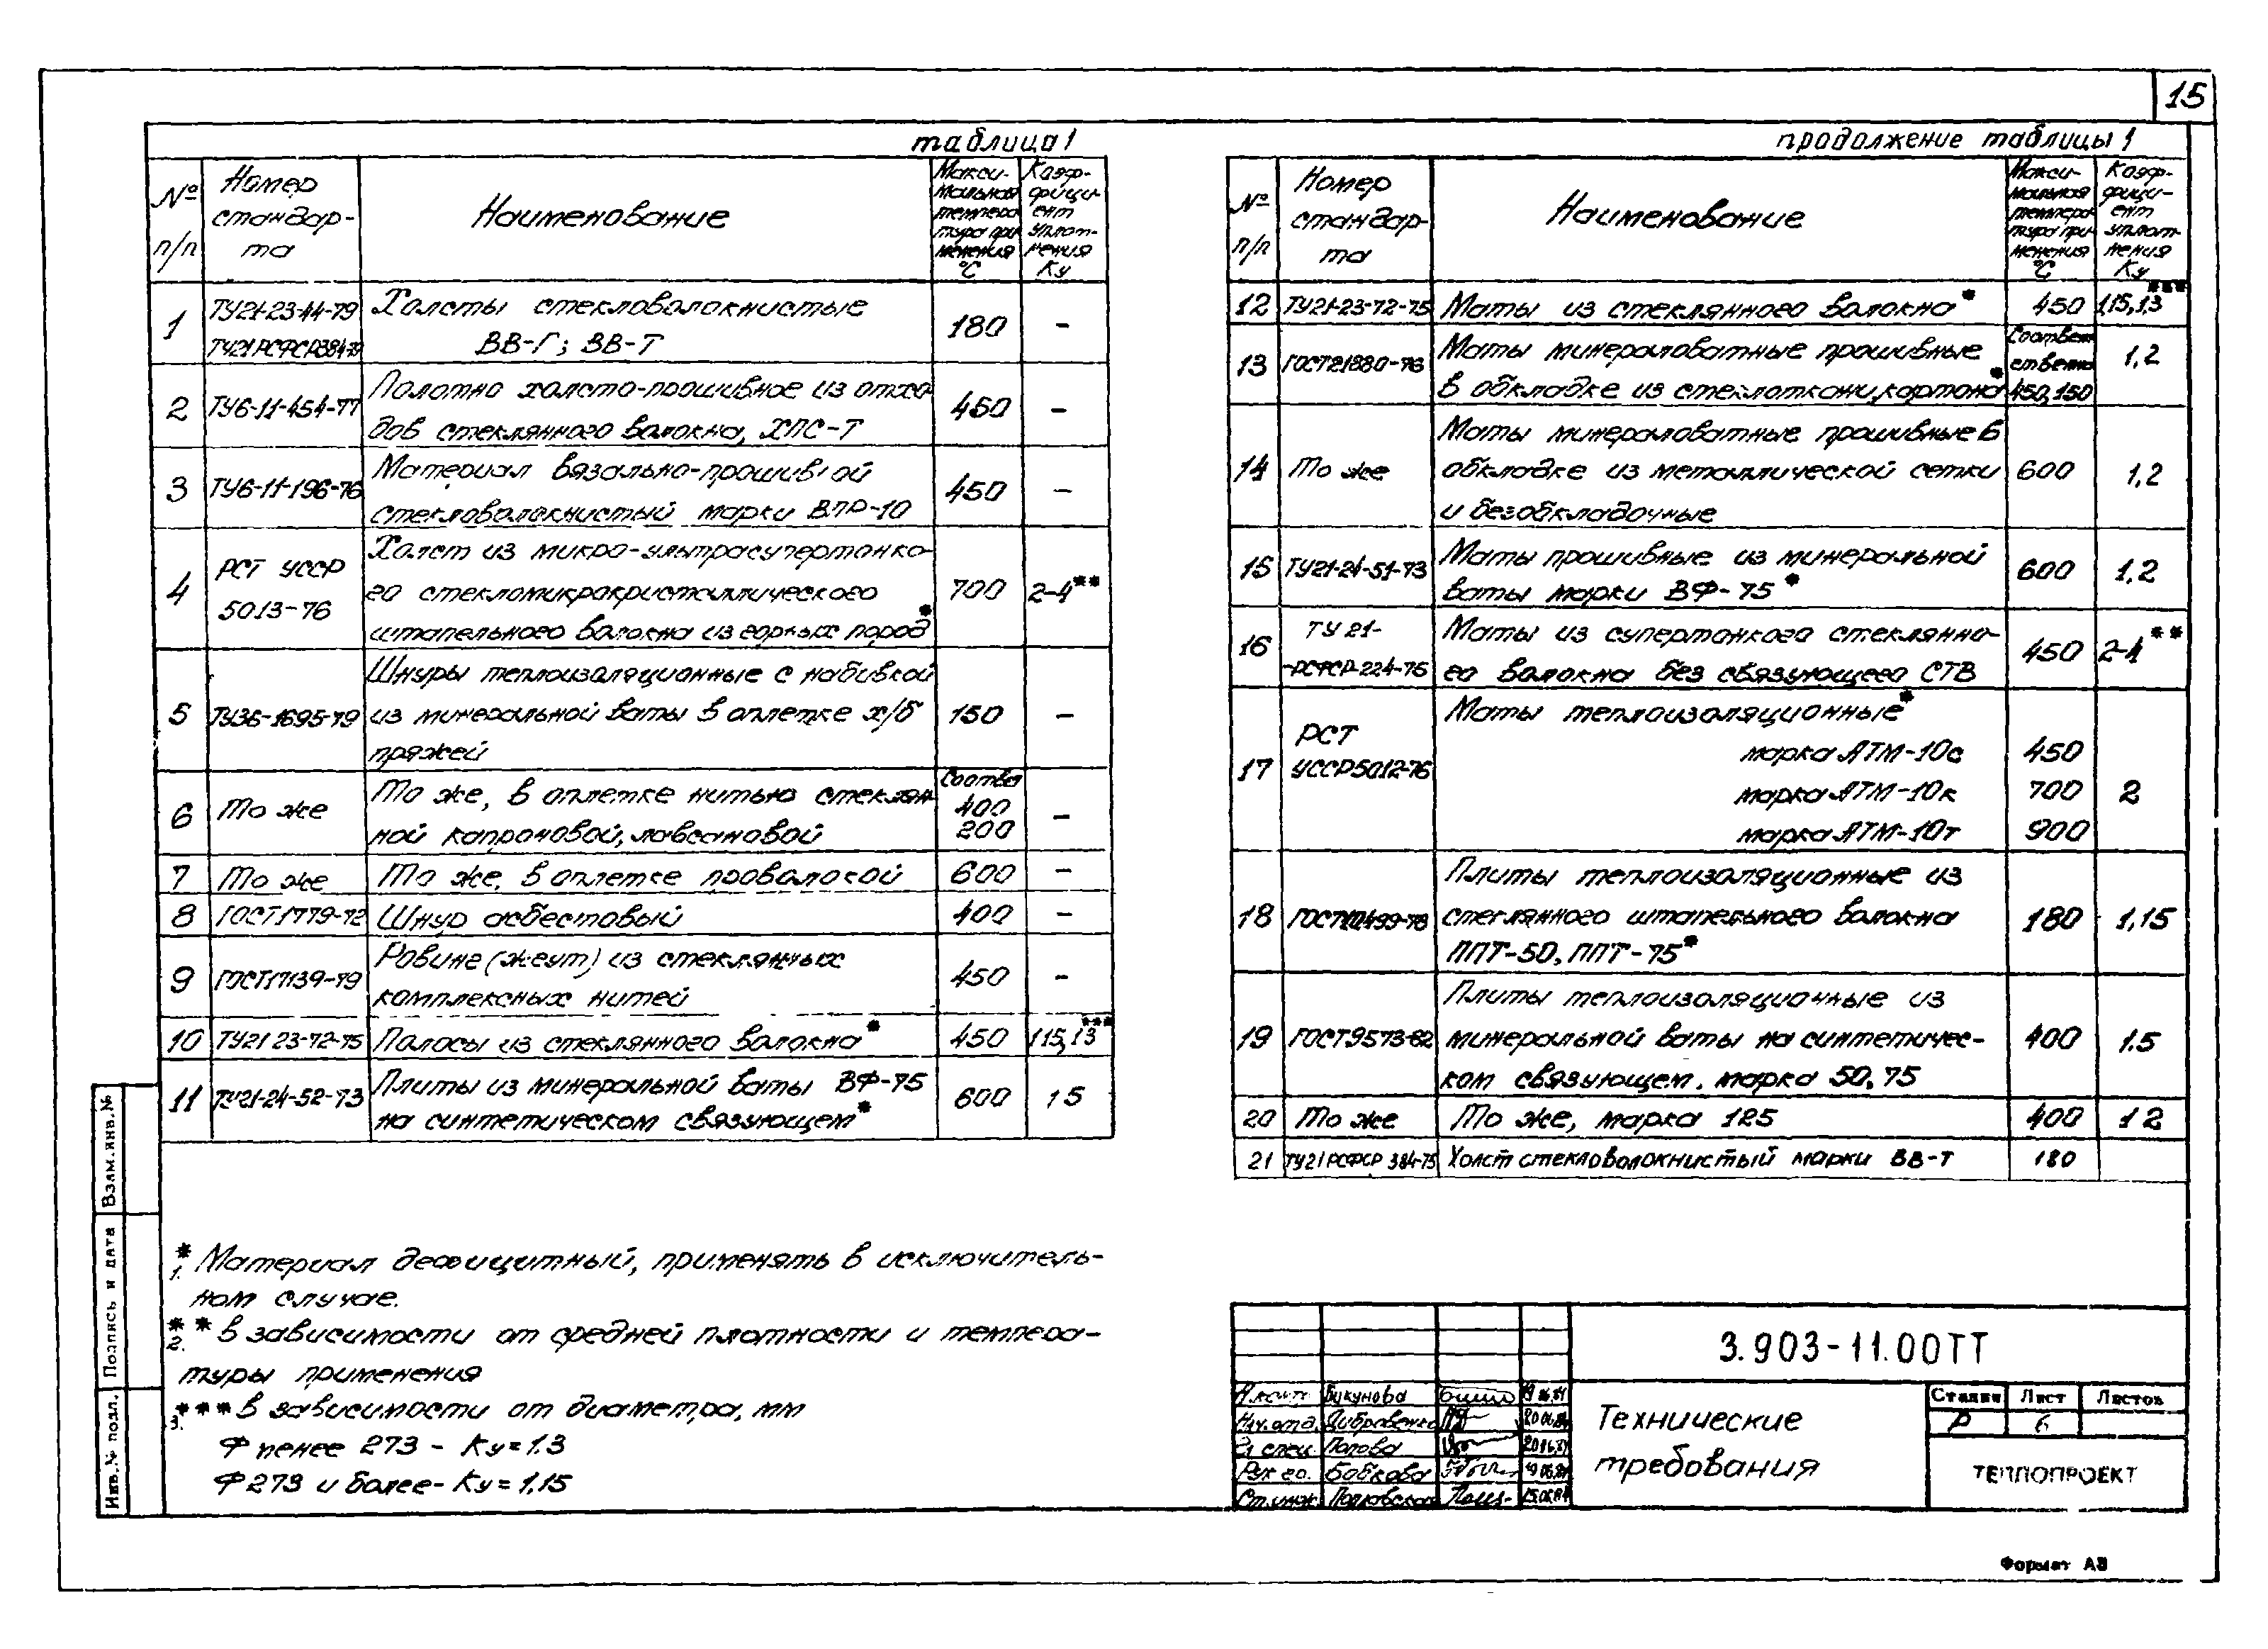 15
таблица 1
№ п/п
Номер стандар-та
Наименование
Макси-мальная темпера тура при менения °С
Коэф-фици-ент уплот-нения Ку
1
ТУ21-23-44-79
Холсты стекловолокнистые
ВВ-Г; ВВ-Т
180
–
2
ТУ6-11-454-77
Полотно холсто-прошивное из отхо
дов стеклянного волокна, ХПС-Т
450
–
3
ТУ6-11-196-76
Материал вязально-прошивной
стекловолокнистый марки ВПР-10
450
–
4
РСТ УССР
5013-76
Холст из микро-ультрасупертонко-
го стекломикрокристаллического
штапельного волокна из горных пород *
700
2-4**
5
ТУ36-1695-79
Шнуры теплоизоляционные с набивкой
из минеральной ваты в оплетке х/б
пряжей
150
–
6
То же
То же, в оплетке нитью стеклян
ной капроновой, лавсановой
Соответ
400
200
–
7
То же
То же, в оплетке проволокой
600
–
8
ГОСТ 1779-72
Шнур асбестовый
400
–
9
ГОСТ17139-79
Ровинг (жгут) из стеклянных
комплексных нитей
450
–
10
ТУ21 23-72-75
Полосы из стеклянного волокна*
450
1 15, 1 3***
11
ТУ21-24-52-73
Плиты из минеральной ваты ВФ-75
на синтетическом связующем*
600
1 5
продолжение таблицы 1
№ п/п
Номер стандар-та
Наименование
Макси-мальная темпера тура при менения °С
Коэф-фици-ент уплот-нения Ку
12
ТУ21-23-72-75
Маты из стеклянного волокна*
450
1,15, 1,3***
13
ГОСТ21880-76
Маты минераловатные прошивные
в обкладке из стеклоткани, картона*
Соответ
ственно
450, 150
1,2
14
То же
Маты минераловатные прошивные в
обкладке из металлической сетки
и безобкладочные
600
1,2
15
ТУ21-24-51-73
Маты прошивные из минеральной
ваты марки ВФ-75*
600
1,2
16
ТУ 21-
-РСФСР-224-75
Маты из супертонкого стеклянно-
го волокна без связующего СТВ
450
2-4**
17
РСТ
УССР5012-76
Маты теплоизоляционные*
марка АТМ-10с 450
марка АТМ-10к 700 2
марка АТМ-10т 900
18
ГОСТ10499-78
Плиты теплоизоляционные из
стеклянного штапельного волокна
ППТ-50, ППТ-75*
180
1,15
19
ГОСТ9573-82
Плиты теплоизоляционные из
минеральной ваты на синтетичес-
ком связующем. марка 50, 75
400
1.5
20
То же
То же, марка 125
400
1 2
21
ТУ21РСФСР 384-75
Холст стекловолокнистый марки ВВ-Т
180
1. * Материал дефицитный, применять в исключитель-
ном случае.
2. ** В зависимости от средней плотности и темпера-
туры применения
3. *** В зависимости от диаметра, мм
Ф менее 273 - Ку=1.3
Ф 273 и более - Ку=1,15
Взам.инв.№
Подпись и дата
Инв.№ подл.
3.903-11.00ТТ
Н.конт. Букунова
Нач.отд.
Гл спец. Попова
Рук гр. Бобкова
Ст.инж.
Технические
требования
Стадия Лист Листов
Р 6
ТЕПЛОПРОЕКТ
Формат А3